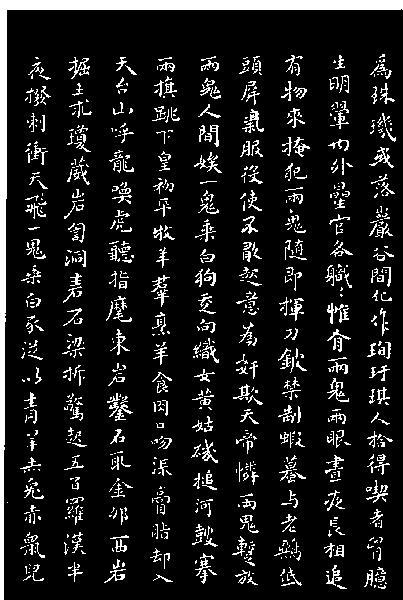 為珠璣或落巖谷間化作珣玗琪人拾得喫者胷臆
生明翬內外曐官各職〻惟有兩鬼兩眼晝夜長相追
有物來掩犯兩鬼隨即揮刀鈹禁制蝦蟇与老鵶低
頭屏氣服役使不敢起意為奸欺天帝憐兩鬼暫放
兩鬼人間娭一鬼乘白狗走向織女黃姑磯槌河鼓褰
兩旗跳下皇初平牧羊羣烹羊食肉口吻流膏脂却入
天台山呼龍喚虎聽指麾東岩鑿石取金卯西岩
掘土求瓊葳岩訇洞砉石梁折驚起五百羅漢半
夜撥剌衝天飛一鬼乘白豕從以青羊青兔赤鼠兒